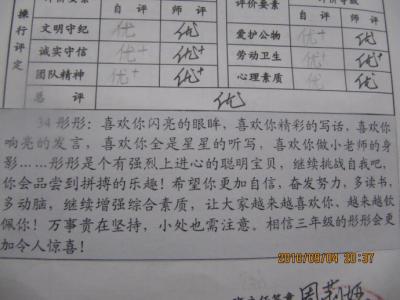 评价要素
自评
师评
评价要素
操行评定
文明守纪 优 优 爱护公物 优+ 优
诚实守信 优 优+ 劳动卫生 优 优+
团队精神 优+ 优 心理素质 优 优
总评 优
34 彤彤：喜欢你闪亮的眼眸，喜欢你精彩的写话，喜欢你
响亮的发言，喜欢你全是星星的听写，喜欢你做小老师的身
影……彤彤是个有强烈上进心的聪明宝贝，继续挑战自我吧，
你会品尝到拼搏的乐趣！希望你更加自信，奋发努力，多读书，
多动脑，继续增强综合素质，让大家越来越喜欢你、越来越钦
佩你！万事贵在坚持，小处也需注意。相信三年级的彤彤会更
加令人惊喜！
2010/09/04 20:37